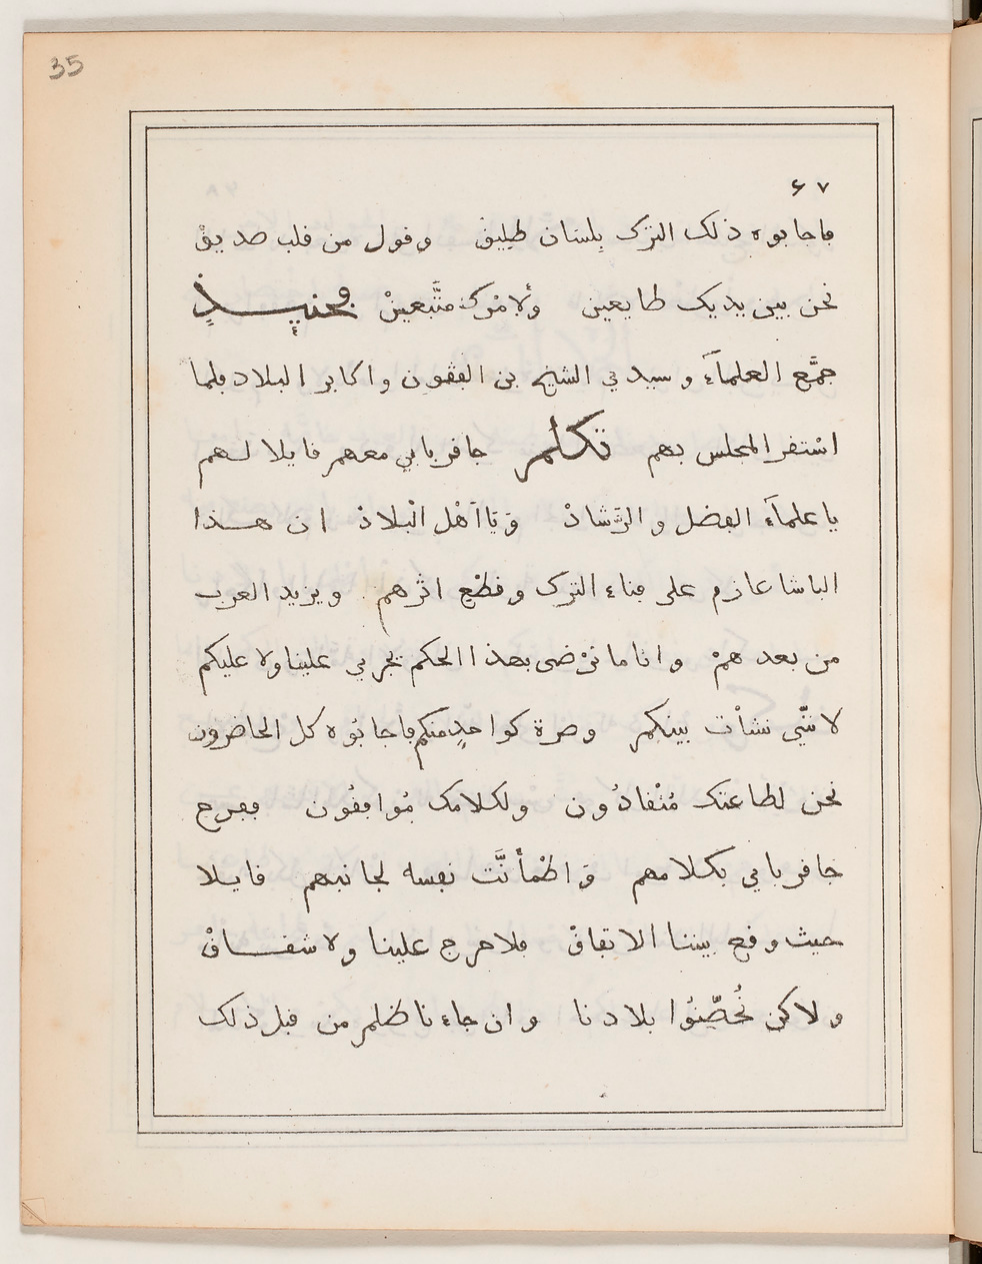 35
٦٧
فاجابوه ذلك الترك بلسان طليق وقول من قلب صديقْ
نحن بين يديك طايعين ولامْرك متَّبعينْ فحينيـــذٍ
جمَّع العلمآء وسيدي الشيخ بن الفقون واكابر البلاد فلما
اسْتقر المجلس بهم تكلم جاقر باي معهم قايلا لهم
يا علمآء الفضل والرَّشادْ وَيَا اَهْل الْبلادْ ان هـذا
الباشا عازم على فناء الترك وقطْع اثْرهم ويزيد العرب
من بعد همْ وانا ما نرْضى بهذا الحكم يجري علينا ولا عليكم
لانّني نشأت بينكم وصرة كواحدٍ منكم فاجابُوه كل الحاضرون
نحن لطاعتك مُنْقادُون ولكلامك مُوافقُون ففرح
جاقر باي بكلامهم وَاطْمأنَّت نفسه لجانبهم قايلا
حيث وقع بيننا الاتفاقْ فلاحرج علينا ولا شقـــاقْ
ولاكن نُحصِّنُوا بلادنا وان جاءنا ظلم من قبل ذلك